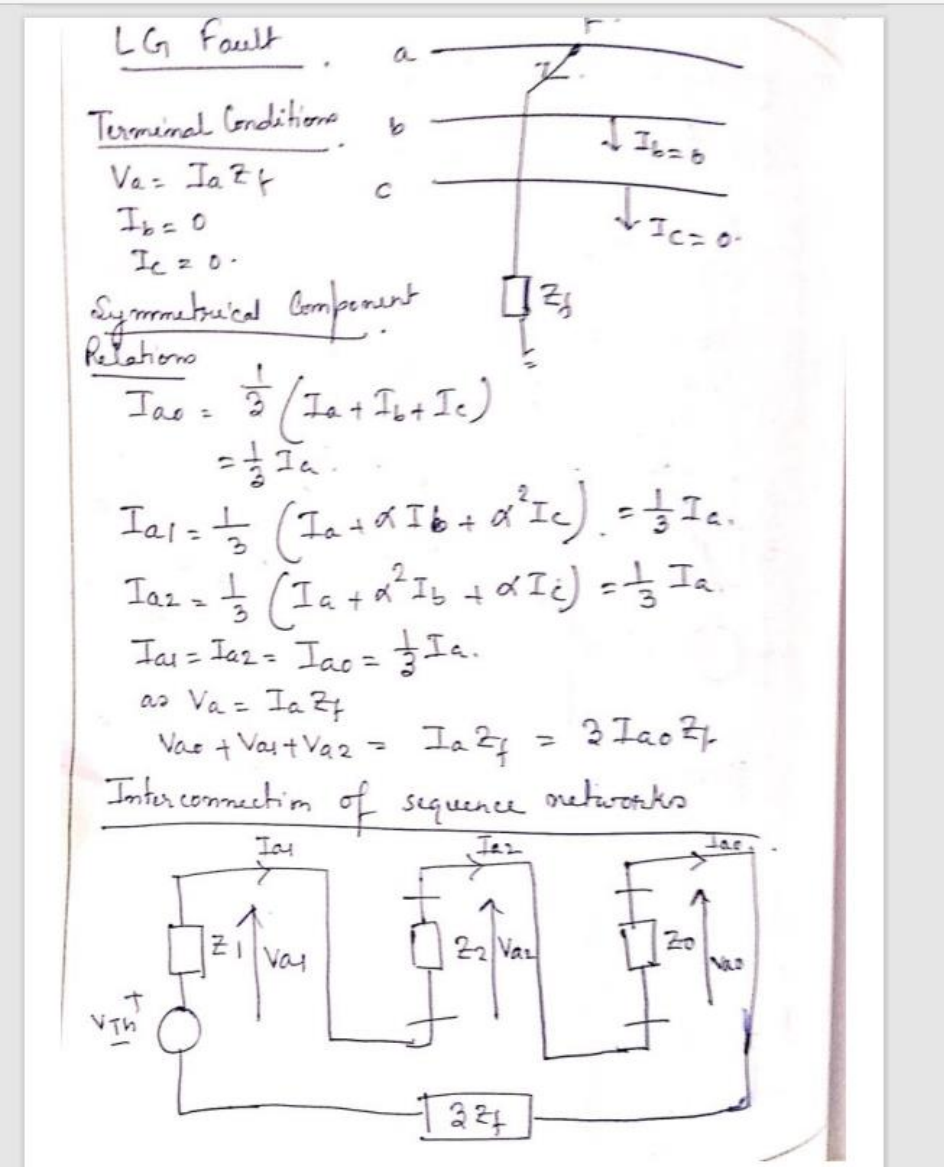 LG Fault .
F
a
Z
Terminal Conditions .
b
Ib = 0
Va = Ia Zf
c
Ib = 0
Ic = 0.
Ic = 0.
Symmetrical Component .
Zf
Relations
Iao = 1/3 (Ia + Ib + Ic)
= 1/3 Ia .
Ia1 = 1/3 (Ia + αIb + α²Ic) . = 1/3 Ia.
Ia2 = 1/3 (Ia + α²Ib + αIc) = 1/3 Ia.
Ia1 = Ia2 = Iao = 1/3 Ia.
as Va = Ia Zf
Vao + Va1 + Va2 = Ia Zf = 3 Iao Zf
Interconnection of sequence networks
Ia1 Ia2 Iao
Z1 Va1 Z2 Va2 Zo Vao
VTh +
-
3Zf